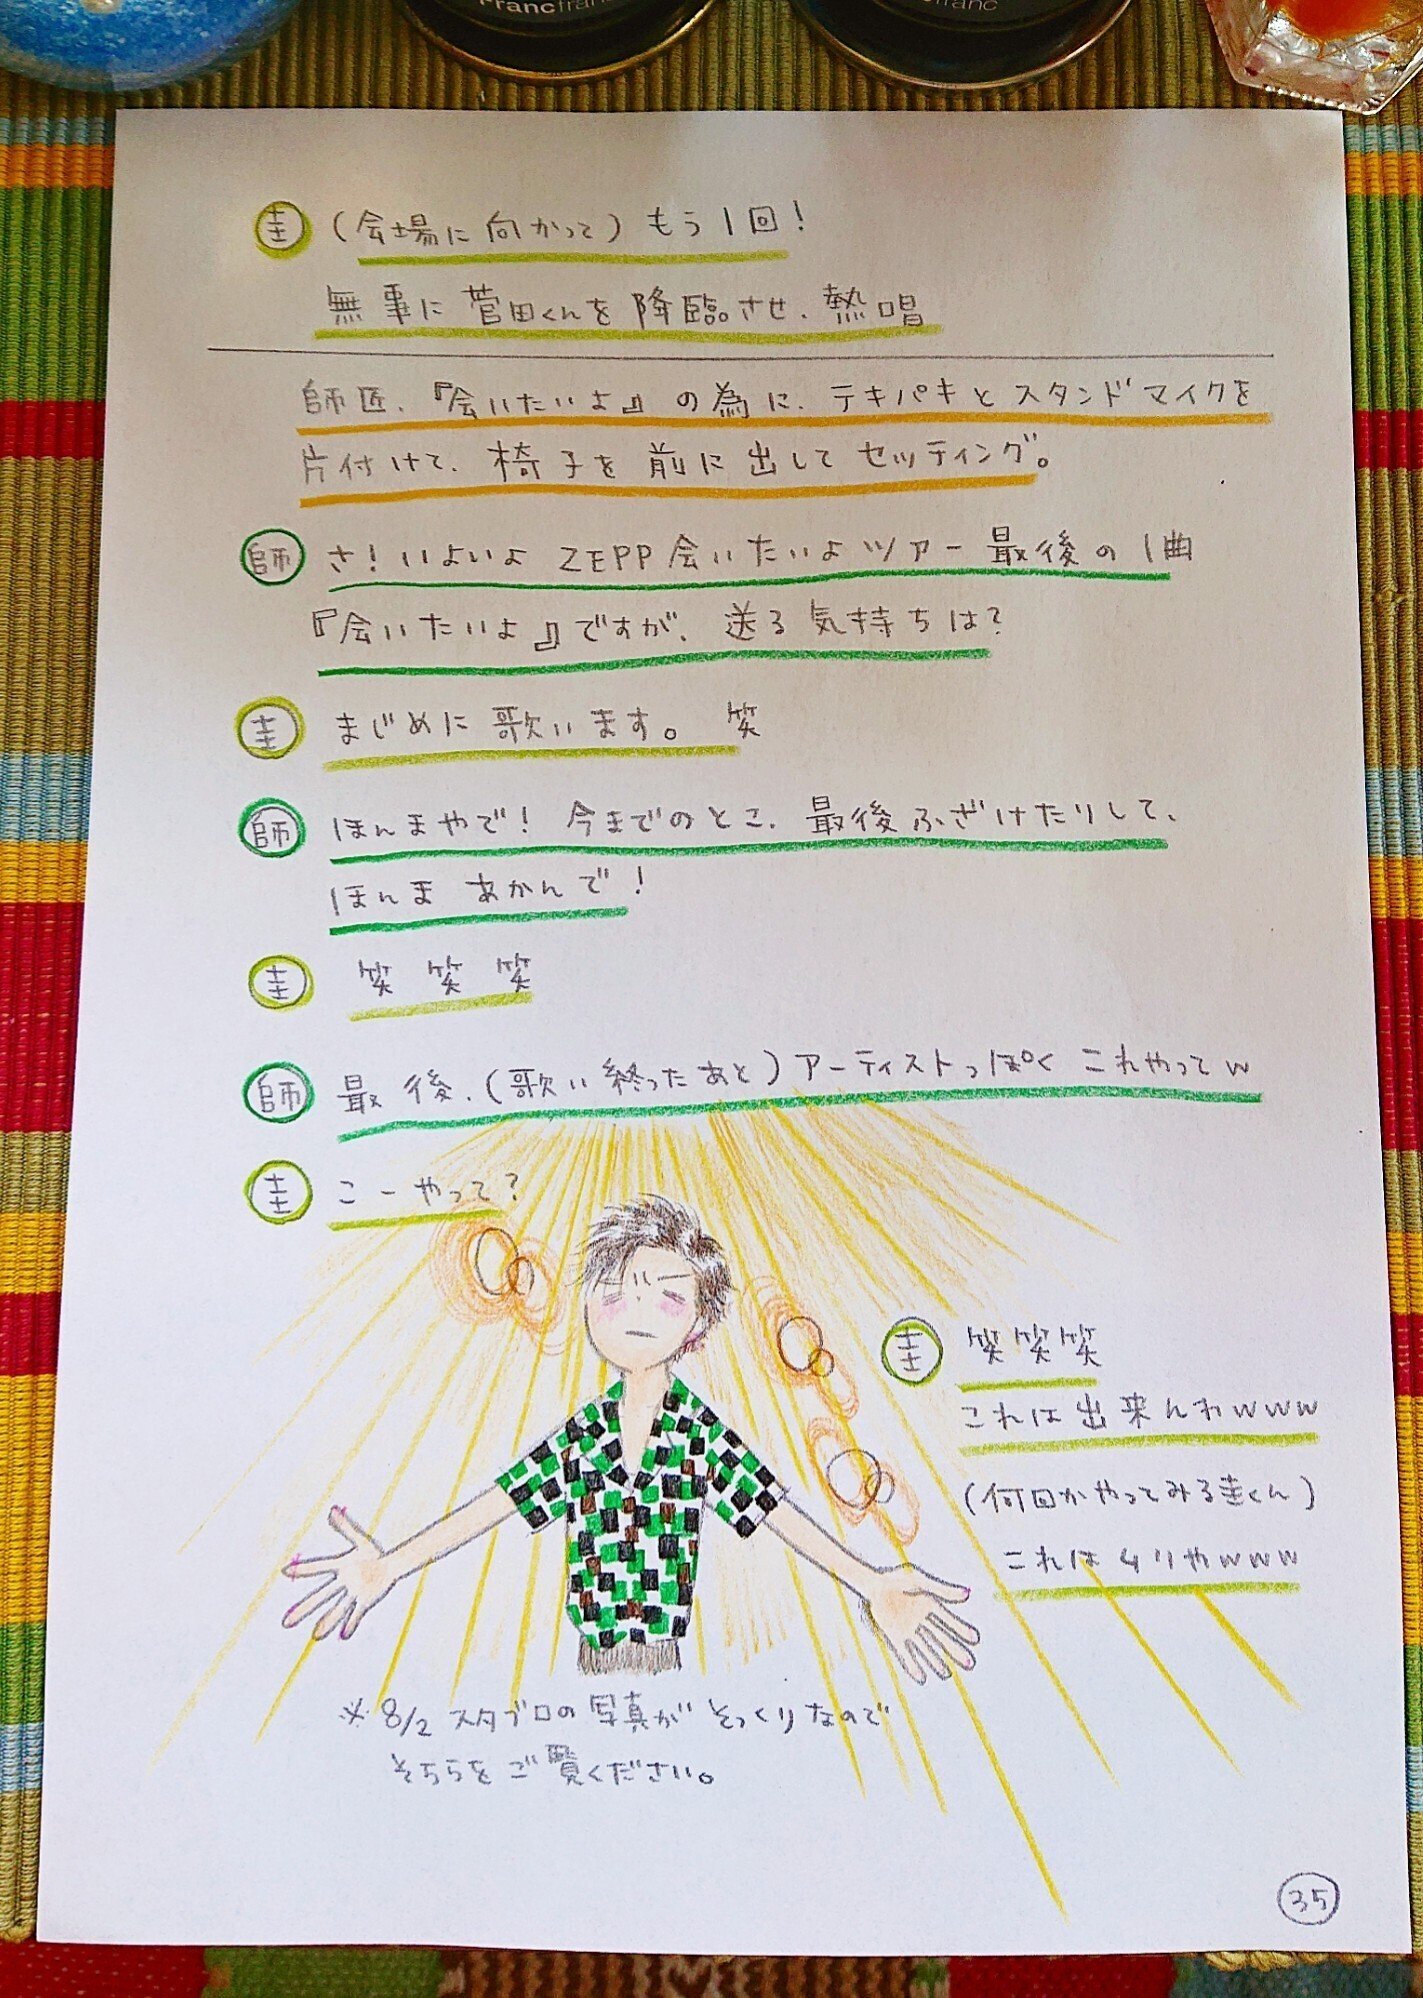 Francfranc
franc
圭 (会場に向かって) もう1回!
無事に菅田くんを降臨させ、熱唱
師匠、『会いたいよ』の為に、テキパキとスタンドマイクを
片付けて、椅子を前に出してセッティング。
師 さ!いよいよ ZEPP会いたいよツアー最後の1曲
『会いたいよ』ですが、送る気持ちは?
圭 まじめに歌います。 笑
師 ほんまやで! 今までのとこ、最後ふざけたりして、
ほんま あかんで!
圭 笑 笑 笑
師 最後、(歌い終ったあと)アーティストっぽく これやってw
圭 こーやって?
圭 笑笑笑
これは出来んわwww
(何回かやってみる圭くん)
これはムリやwww
※8/2 スタブロの写真がそっくりなので
そちらをご覧ください。
35